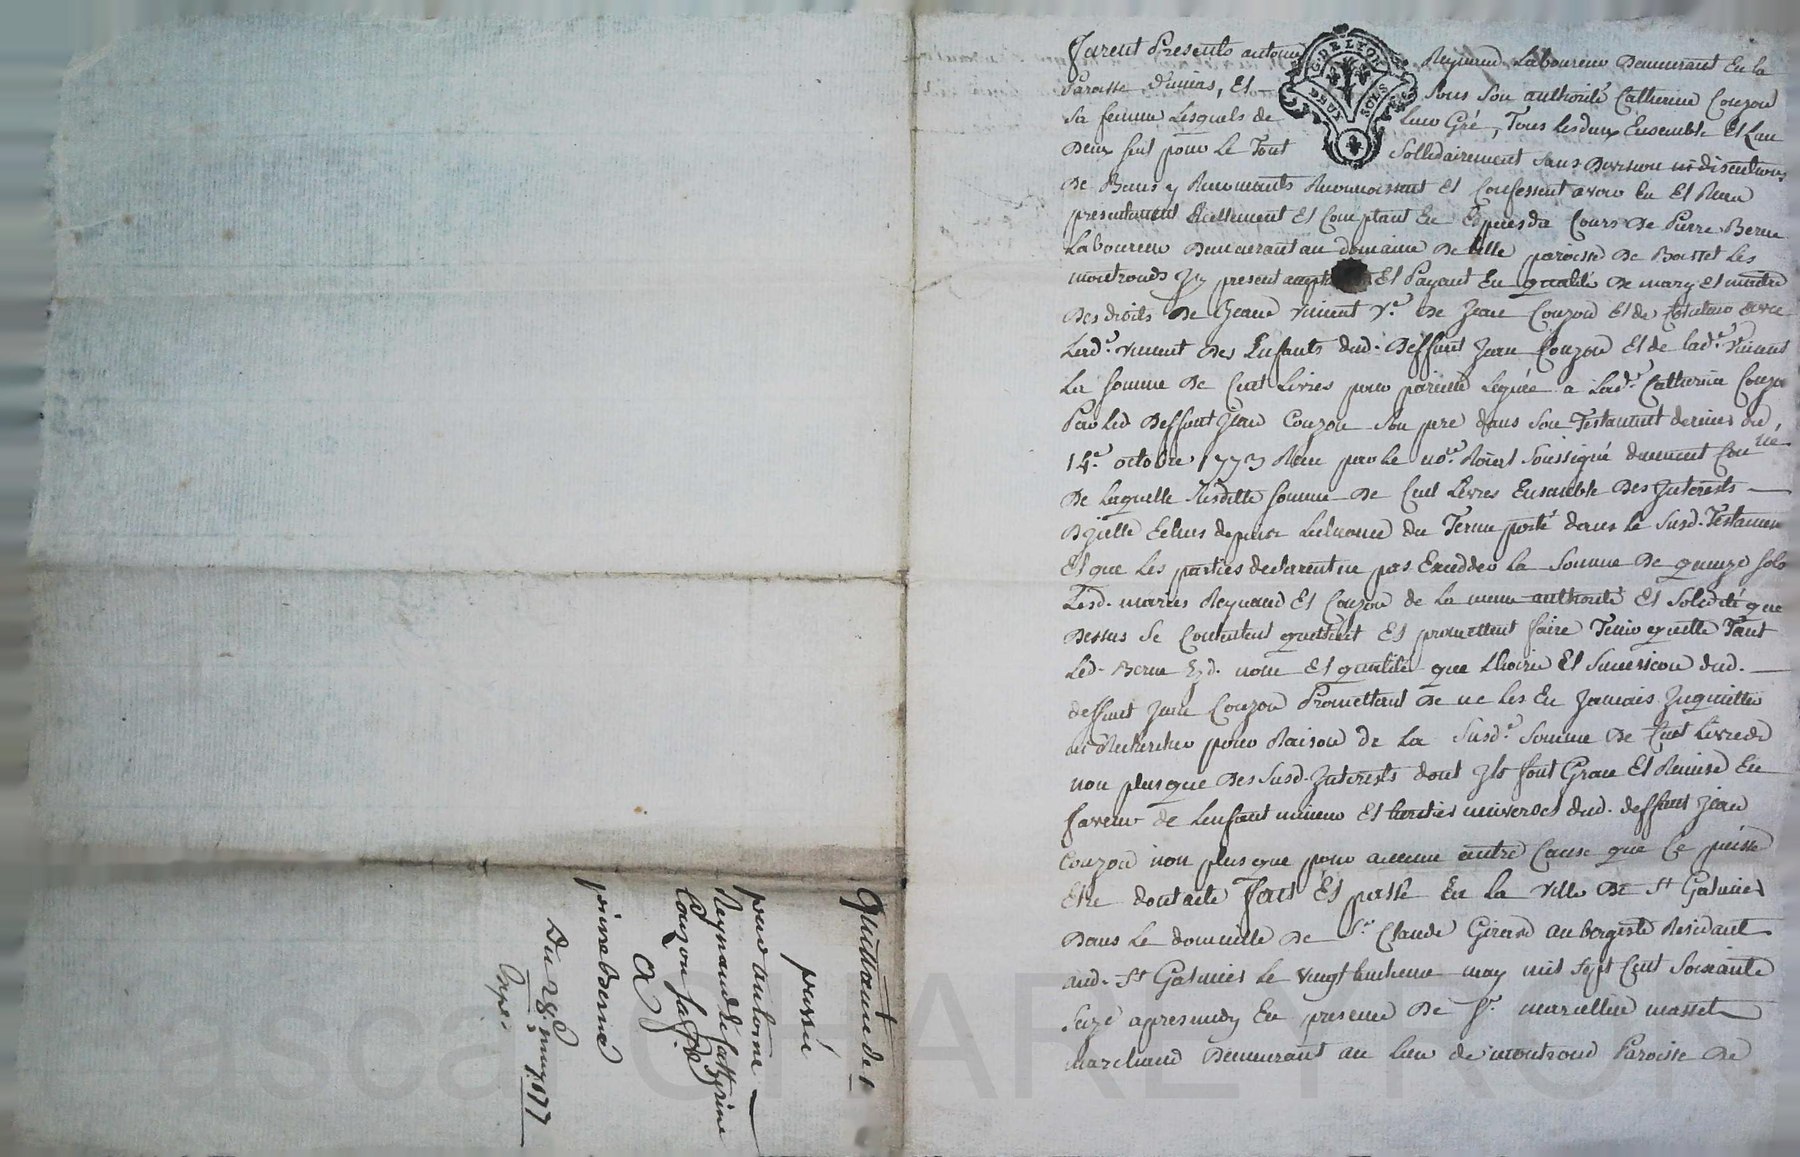 Furent Presents antoine Reynaud Laboureur Demeurant En la
Paroisse D'unias, Et Sous Son authorité Catherine Couzon
Sa femme Lesquels de Leur Gré, Tous Lesdeux Ensemble Et Lun
Deux Seul pour Le Tout Sollidairement Sans Division ni discutions
De Biens y Renoncants Reconnoissent Et Confessent avoir Eu Et Receu
presentement Réellement Et Comptant En Espèces du Cours De Pierre Berne
Laboureur Demeurant au domaine De paroisse De Boisset Les
montronds Jcy present Et Payant En qualité De mary Et maitre
Des droits De Jeane vincent Ve. De Jean Couzon Et de
Lad.e vincent Des Enfants dud. Deffunt Jean Couzon Et de lad.e Vincent
La Somme De Cent Livres pour pareille Leguée a Lad.e Catherine Couzon
Par Led Deffunt Jean Couzon Son pere dans Son Testament dernier du
14.e octobre 1773 Receu par le no.re Roial Soussigné duement Con.llé
De Laquelle Susditte Somme De Cent Livres Ensemble Des Interests
D'jcelle Echus depuis Lecheance du Terme porté dans Le Susd. Testament
Et que Les parties declarent ne pas Excedder La Somme De quinze Sols
Lesd. mariés Reynaud Et Couzon de La meme authorité Et Solidité que
Dessus Se Contentent quittent Et promettent faire Tenir quitte Tant
Led. Berne Esd. nom Et qualité que Lhoirie Et Succession dud.
deffunt Jean Couzon Promettant De ne Les En Jamais Jnquietter
ni Rechercher pour Raison de La Susd.e Somme De Cent Livres
non plus que Des Susd. Interests dont Jls font Grace Et Remise En
faveur de Lenfant mineur Et heritier universel dud. deffunt Jean
Couzon non plus que pour aucune autre Cause que Ce puisse
Etre dont acte Fait Et passé En La ville De St Galmier
Dans Le domicille De Sr Claude Girard aubergiste Residant
aud. St Galmier Le vingthuitieme may mil Sept Cent Soixante
Seize apres midy En presence De Sr. marcellin masset
marchand Demeurant au Lieu de montrond Paroisse De
Quittance de
passée
par antoine
Reynaud & Catherine
Couzon Sa fe
a
pierre berne
Du 28. may 1777
G DE LYON
DEUX SOLS
CHAREYRON